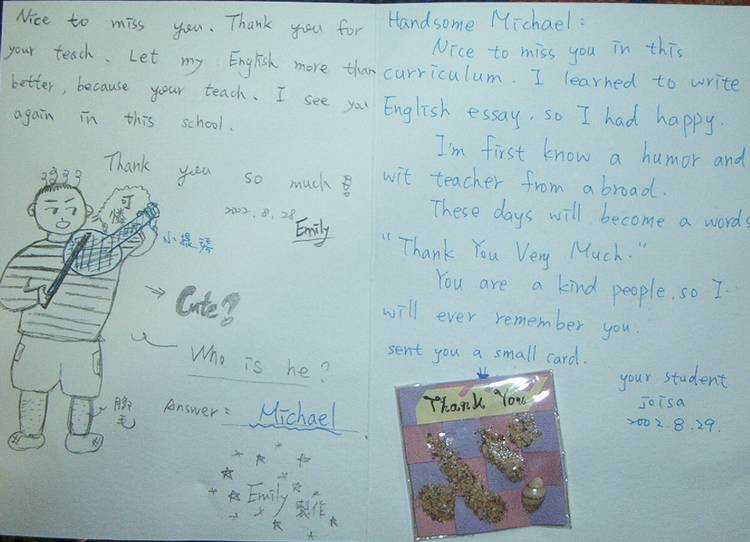 Nice to miss you. Thank you for
your teach. Let my English more than
better, because your teach. I see you
again in this school.
Thank you so much!
2002.8.28
Emily
可憐
小提琴
Cute?
Who is he?
Answer: Michael
腳毛
Emily 製作
Handsome Michael:
Nice to miss you in this
curriculum. I learned to write
English essay, so I had happy.
I'm first know a humor and
wit teacher from abroad.
These days will become a words
"Thank You Very Much."
You are a kind people, so I
will ever remember you.
sent you a small card.
your student
joisa
2002.8.29.
Thank You